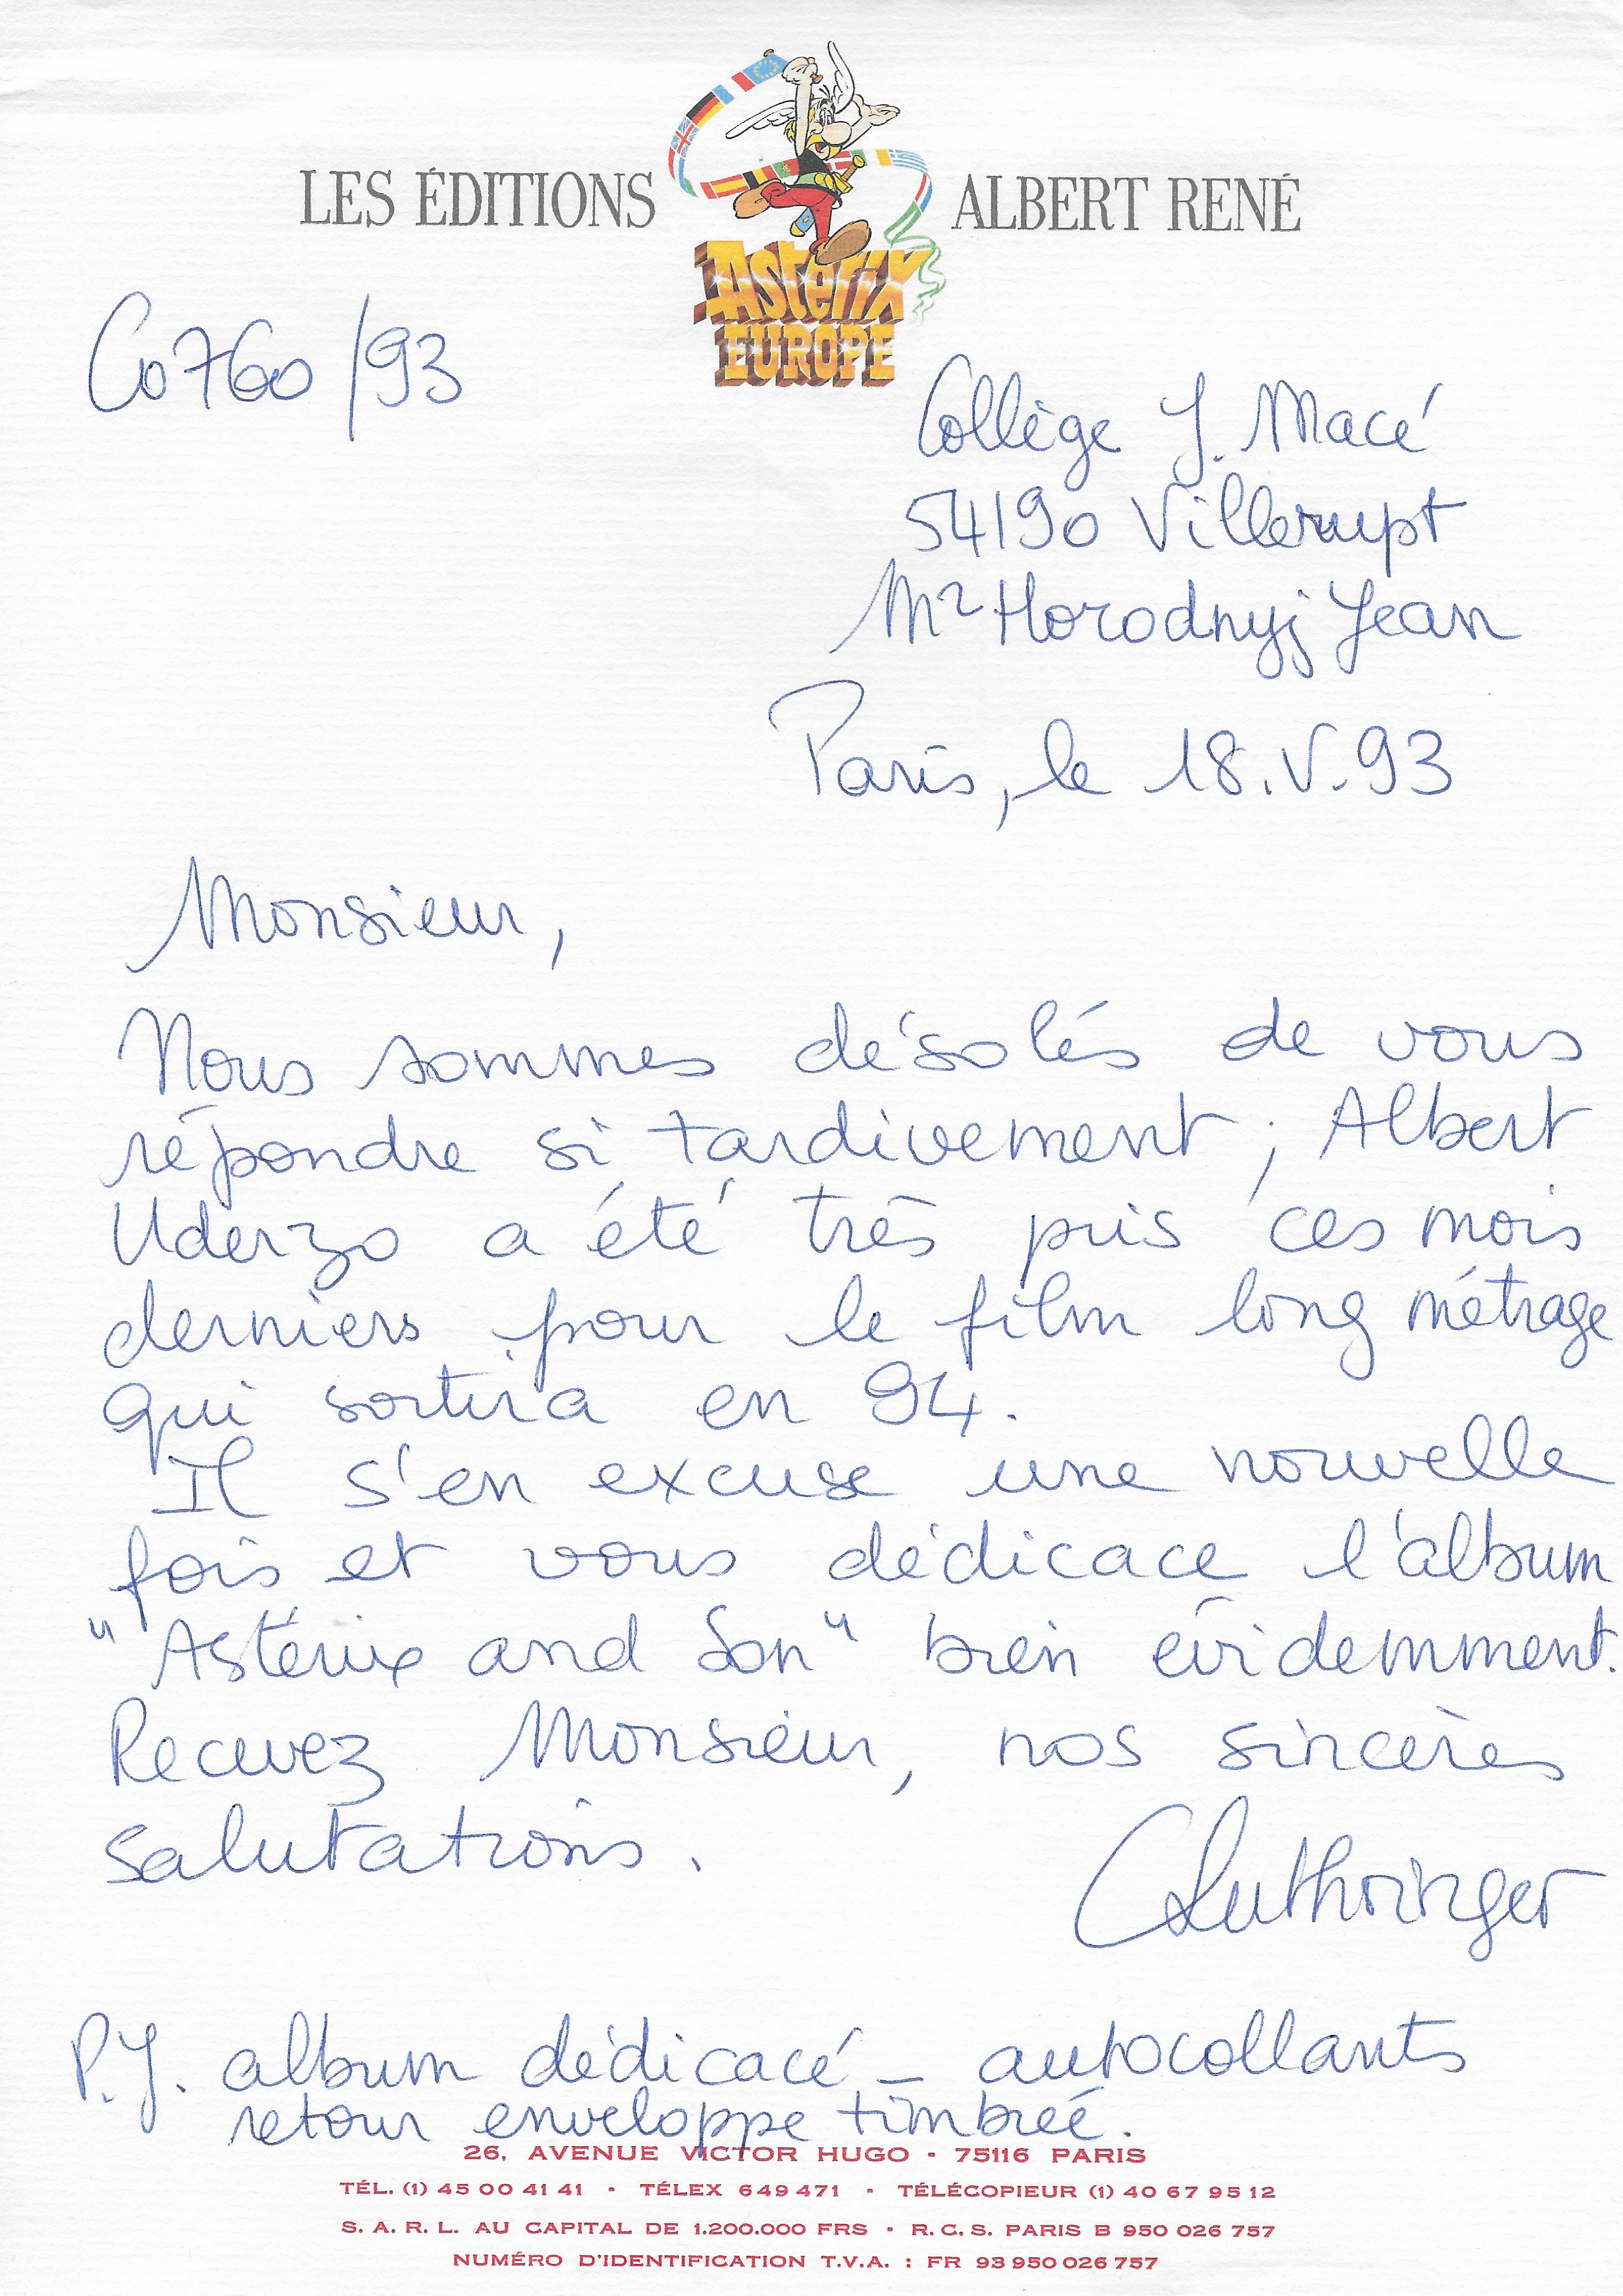 LES ÉDITIONS ALBERT RENÉ
Astérix
EUROPE
Co760/93
Collège J. Macé
54190 Villerupt
Mr Horodnyj Jean
Paris, le 18.V.93
Monsieur,
Nous sommes désolés de vous
répondre si tardivement ; Albert
Uderzo a été très pris ces mois
derniers pour le film long métrage
qui sortira en 94.
Il s'en excuse une nouvelle
fois et vous dédicace l'album
"Astérix and Son" bien évidemment.
Recevez Monsieur, nos sincères
salutations.
CLuthringer
P.J. album dédicacé - autocollants
retour enveloppe timbrée.
26, AVENUE VICTOR HUGO - 75116 PARIS
TÉL. (1) 45 00 41 41 • TÉLEX 649 471 • TÉLÉCOPIEUR (1) 40 67 95 12
S. A. R. L. AU CAPITAL DE 1.200.000 FRS • R. C. S. PARIS B 950 026 757
NUMÉRO D'IDENTIFICATION T.V.A. : FR 93 950 026 757